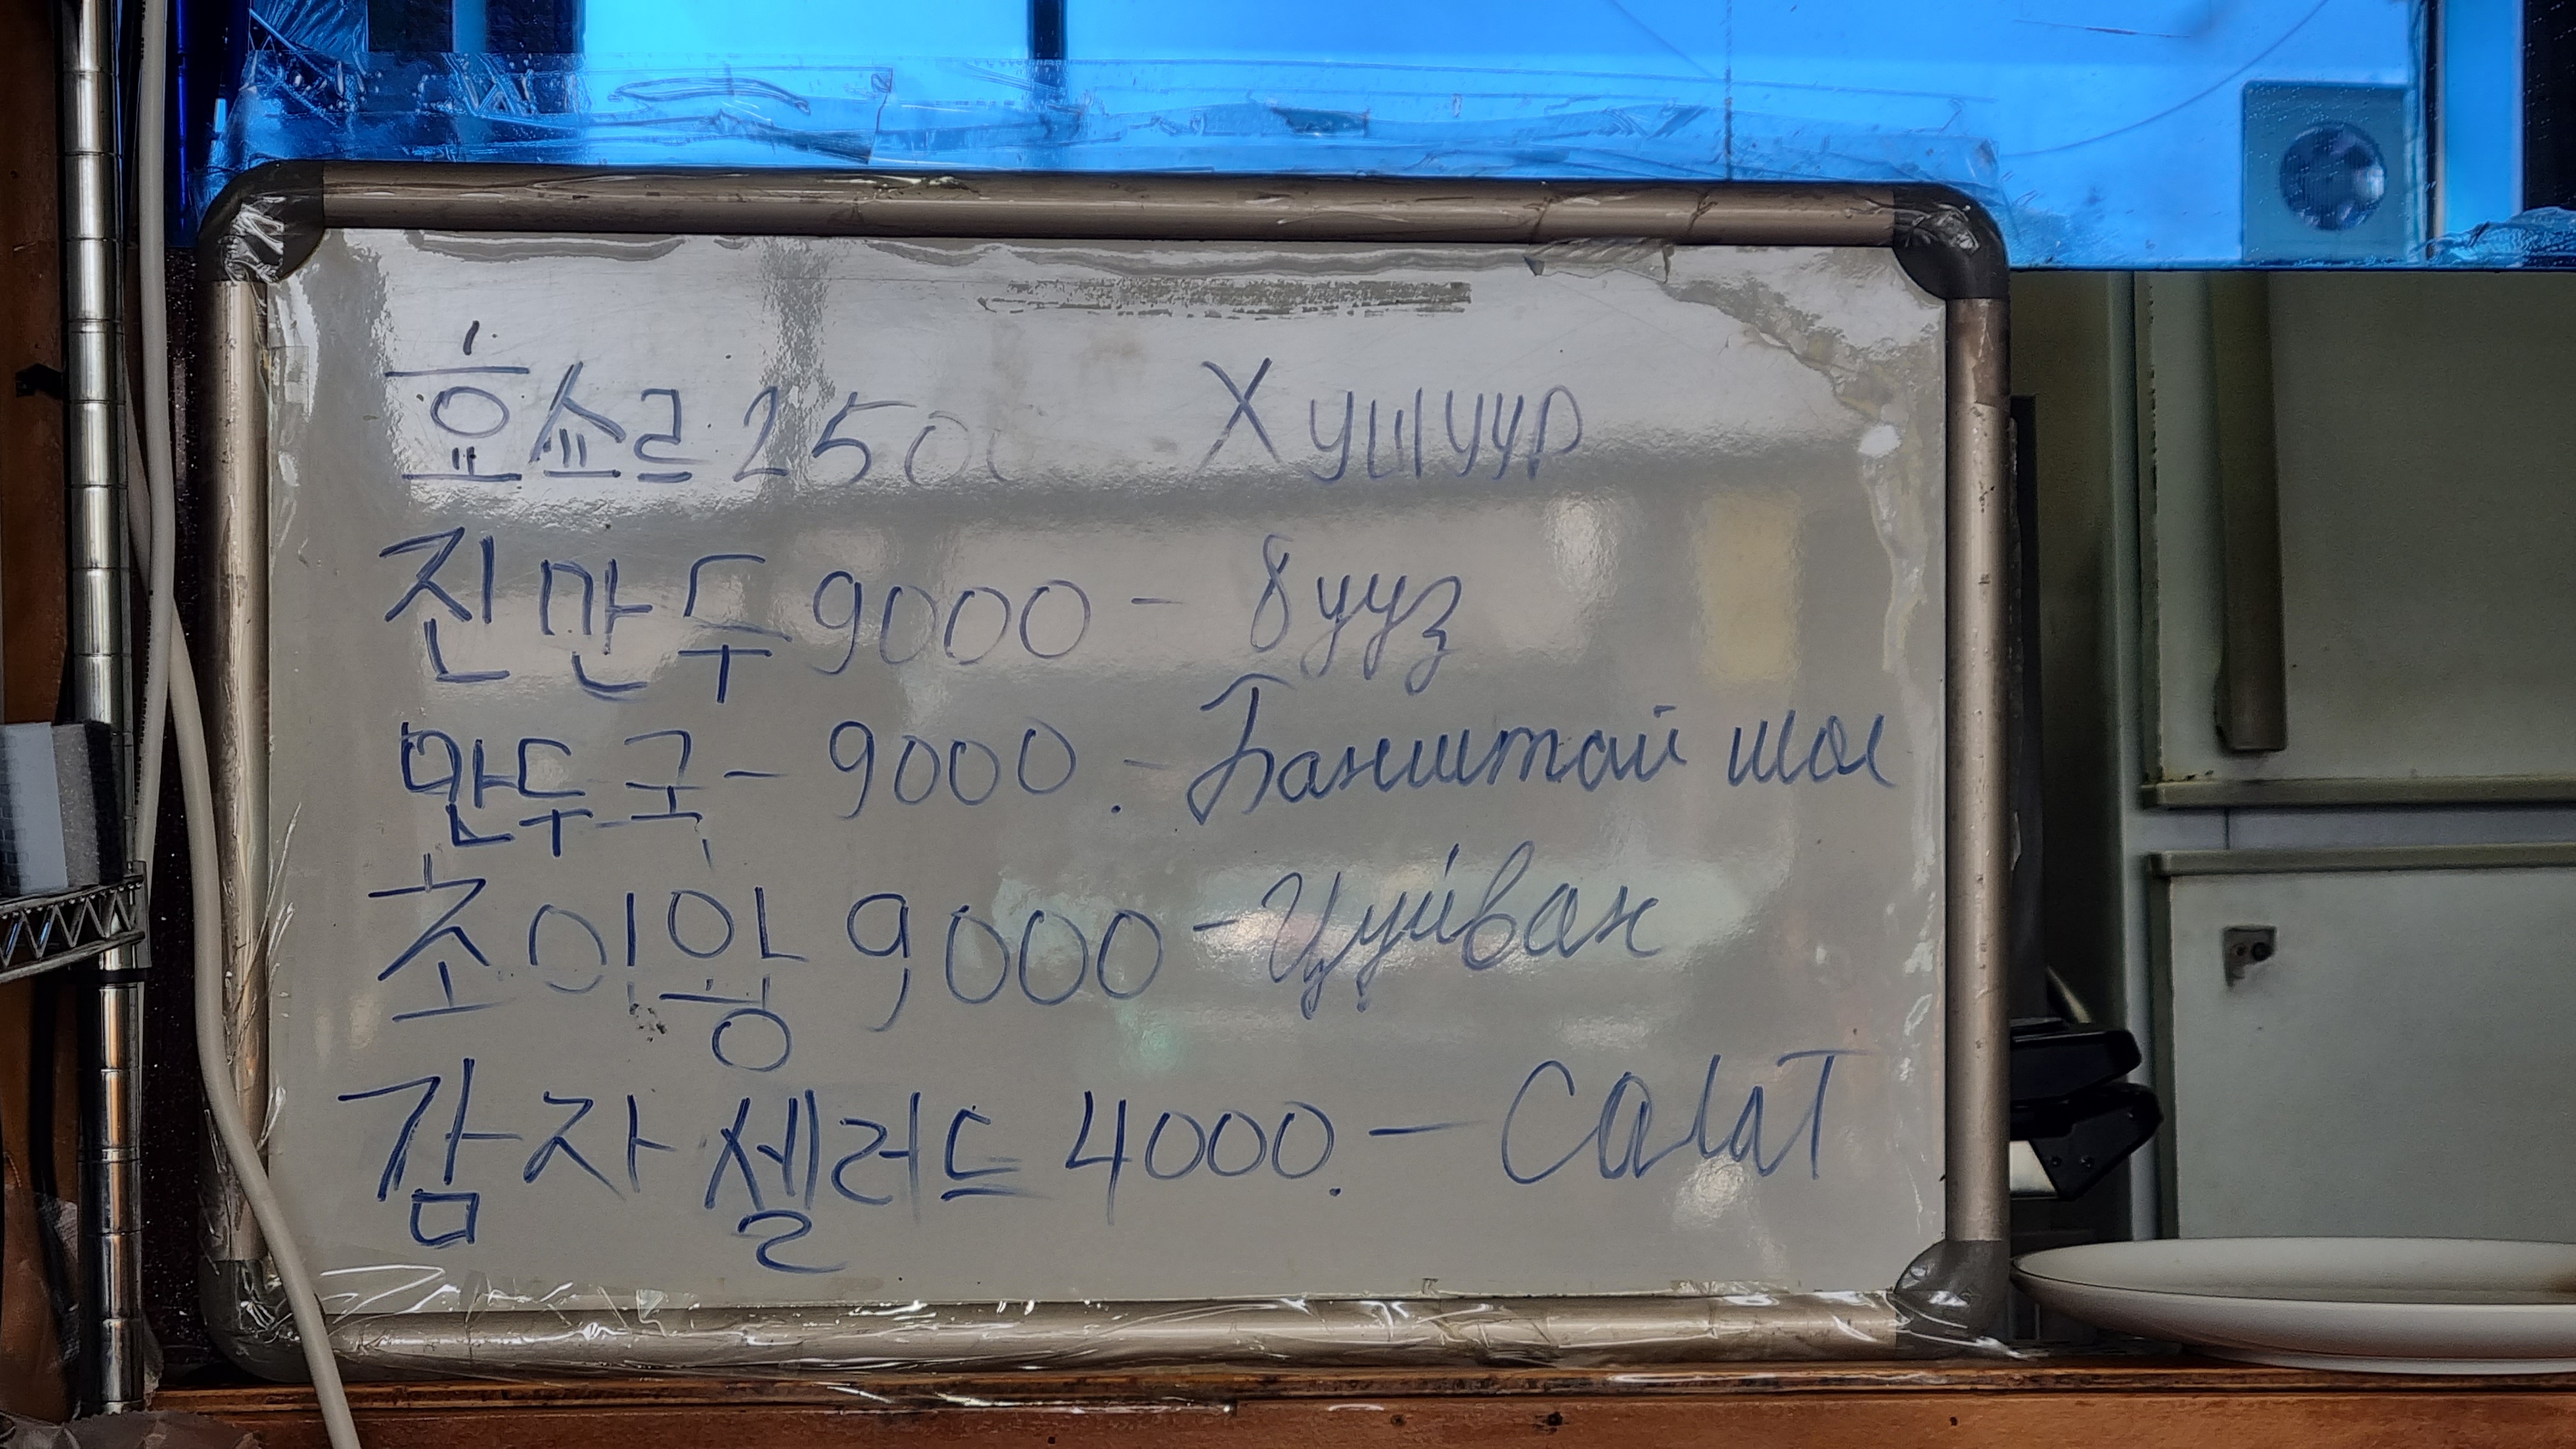 효쇼르 2500 Хушуур
진만두 9000 - бууз
만두국 - 9000. - Банштай шол
초이왕 9000 - Цуйван
감자셀러드 4000. - Салат